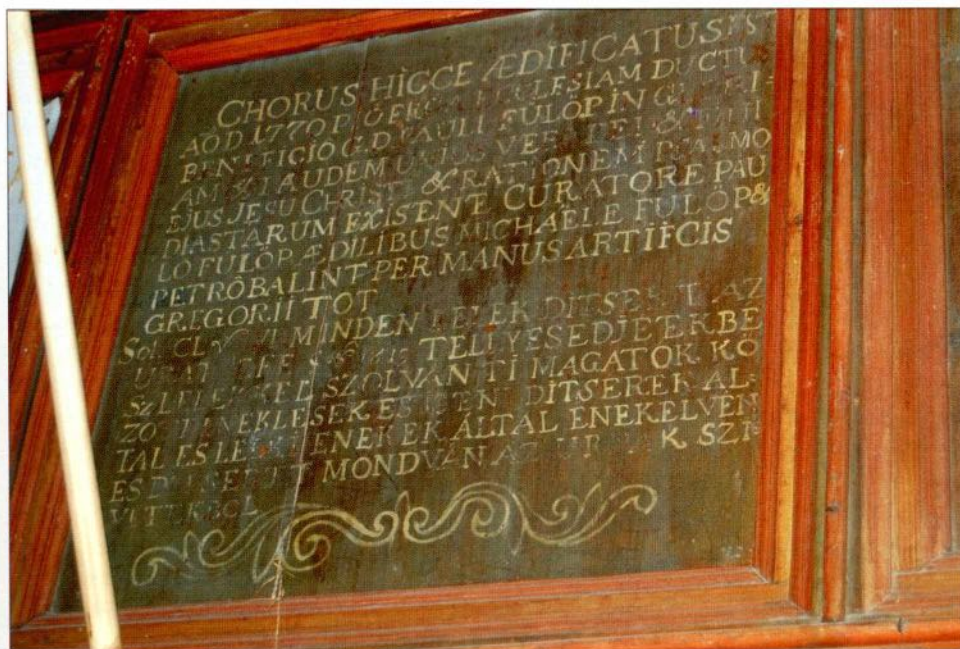 CHORUS HICCE ÆDIFICATUS EST
AÖD 1770 ECCLESIAM DUCTU
BENEFICIO C D PAULI FÜLÖP IN
AM & LAUDEM UNIUS VERI DEI &
EJUS JESU CHRISTI & RATIONEM PSALMO
DIASTARUM EXISENTE CURATORE PAU
LO FÜLÖP ÆDILIBUS MICHAELE FÜLÖP &
PETRÖ BALINT PER MANUS ARTIFCIS
GREGORII TOT
MINDEN LELEK DITSERJE AZ
TELLYESEDJETEK BE
SZOLVÁN TI MAGATOK KÖ
ENEKLESEK ES DITSERETEK AL
TAL ES ENEKEK ÁLTAL ENEKELVEN
ES MONDVÁN AZ URNAK SZI